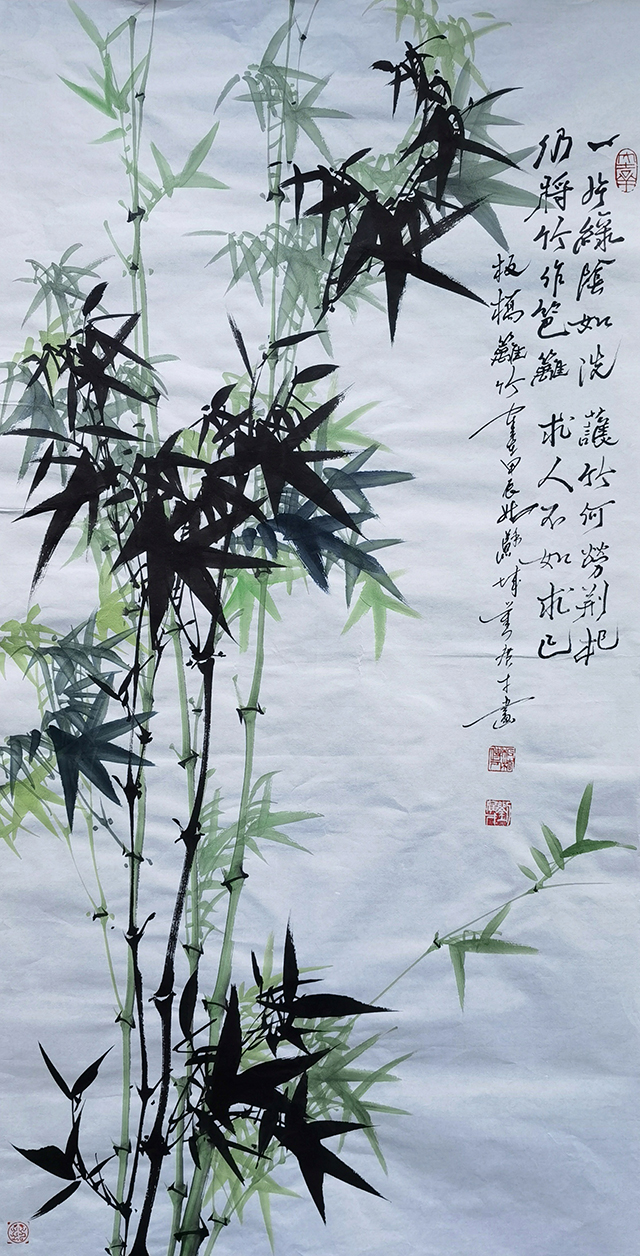 一片綠陰如洗護竹何勞荆杞
仍將竹作笆籬求人不如求己
板橋籬竹甲辰姑蘇城畫